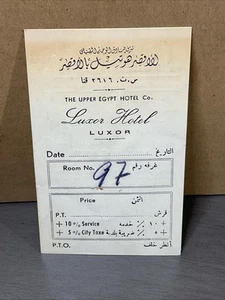 شركة فنادق الوجه القبلى
الاقصر هوتيل بالاقصر
س . ت . ٢٦١٦ قنا
THE UPPER EGYPT HOTEL Co.
Luxor Hotel
LUXOR
Date التاريخ
Room No. 97 غرفه رقم
Price الثمن
P.T. قرش
+ 10 % Service خدمة ٪ ١٠ +
+ 5 % City Taxe ضريبة بلدية ٪ ٥ +
P.T.O. أنظر خلف